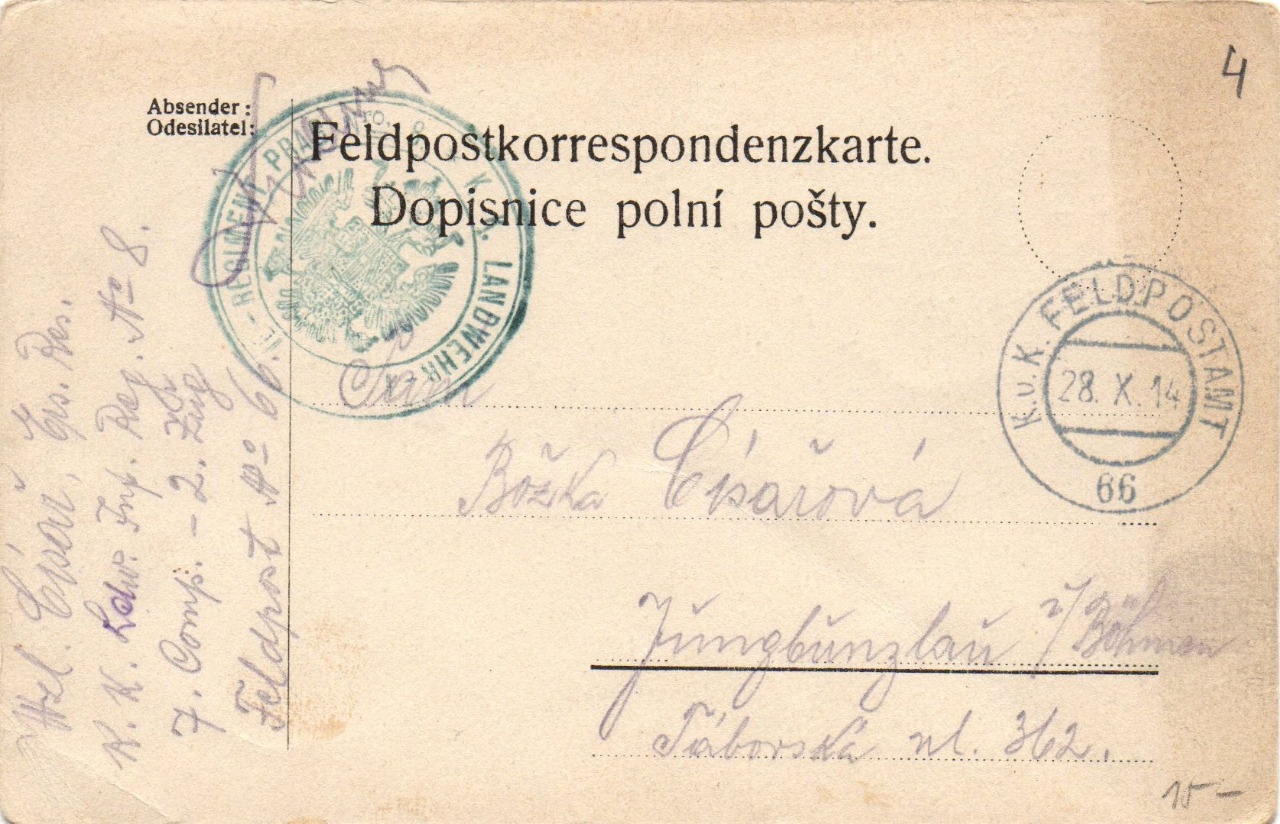 4
Absender:
Odesílatel:
Feldpostkorrespondenzkarte.
Dopisnice polní pošty.
K. K. LANDWEHR REGIMENT PRAG Nro. 8
K. u. K. FELDPOSTAMT
28. X. 14
66
Císař, Ers. Res.
K. K. Ldw. Inf. Reg. No 8.
7. Comp. - 2. Zug
Feldpost No 66.
Božka Císařová
Jungbunzlau i/Böhmen
Táborská ul. 362.